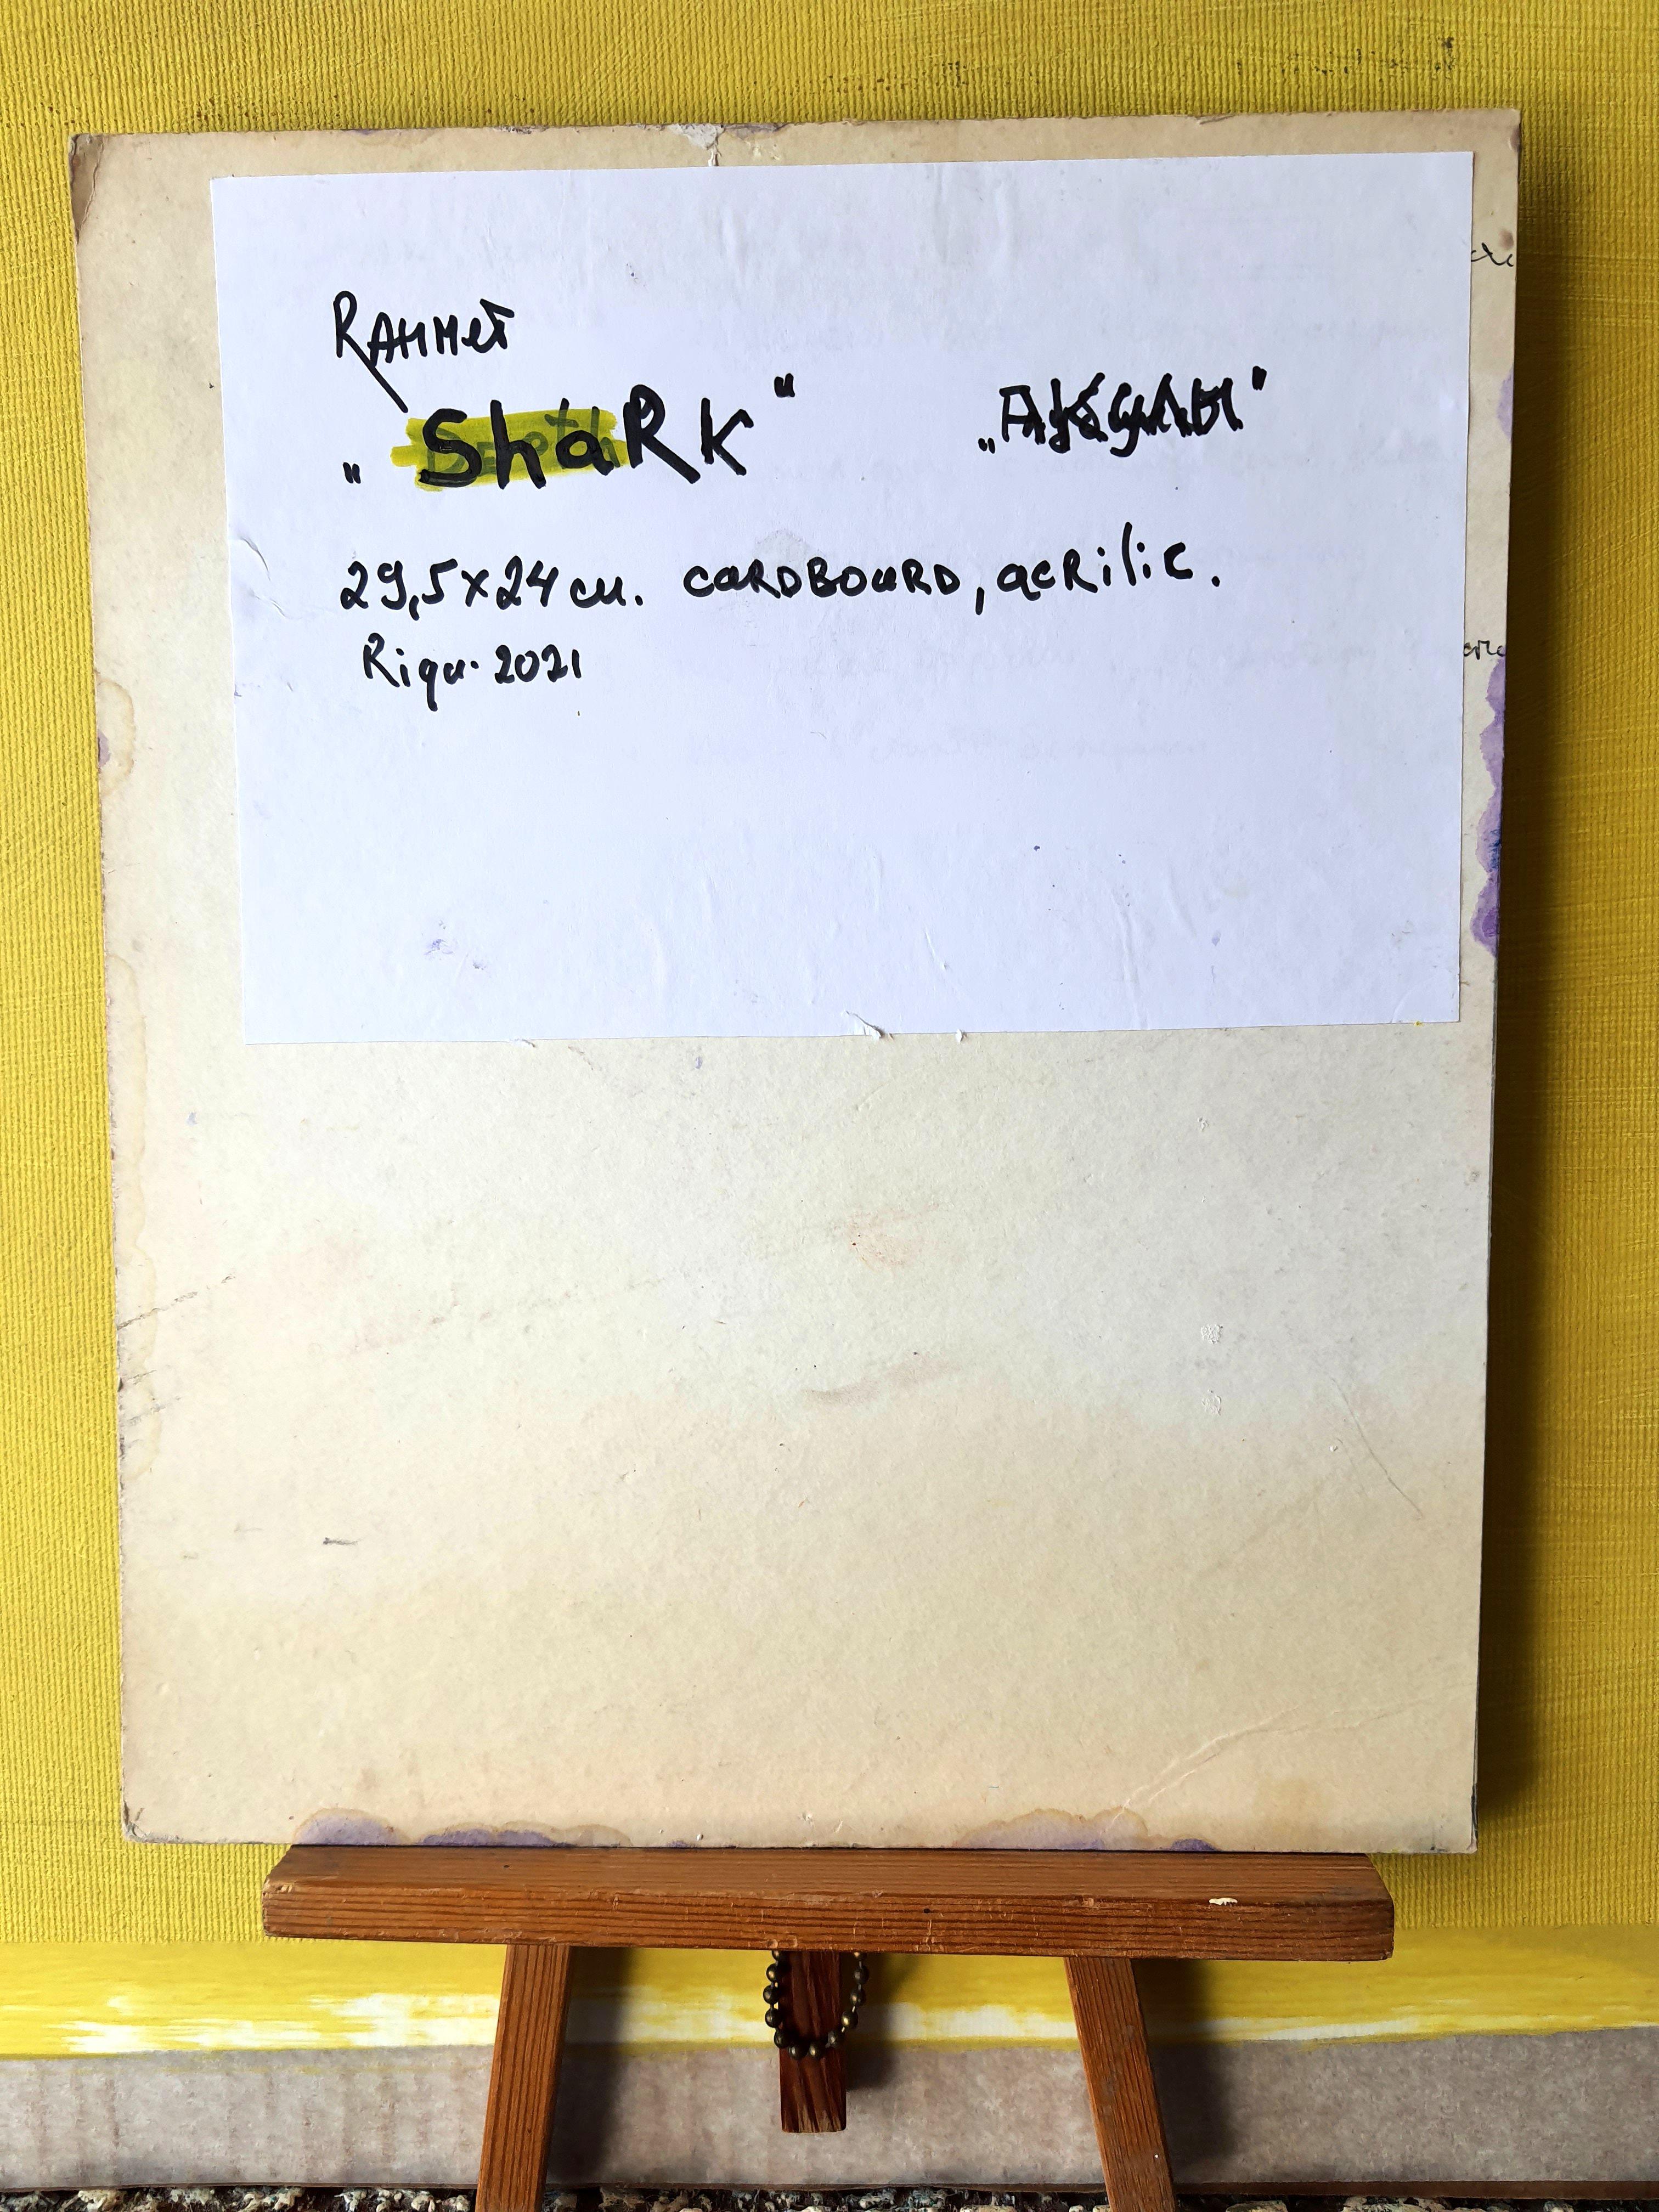 RAHMET
„ShaRK"
29,5x24 cm. CaRDBOaRD, acRilic.
Riga. 2021